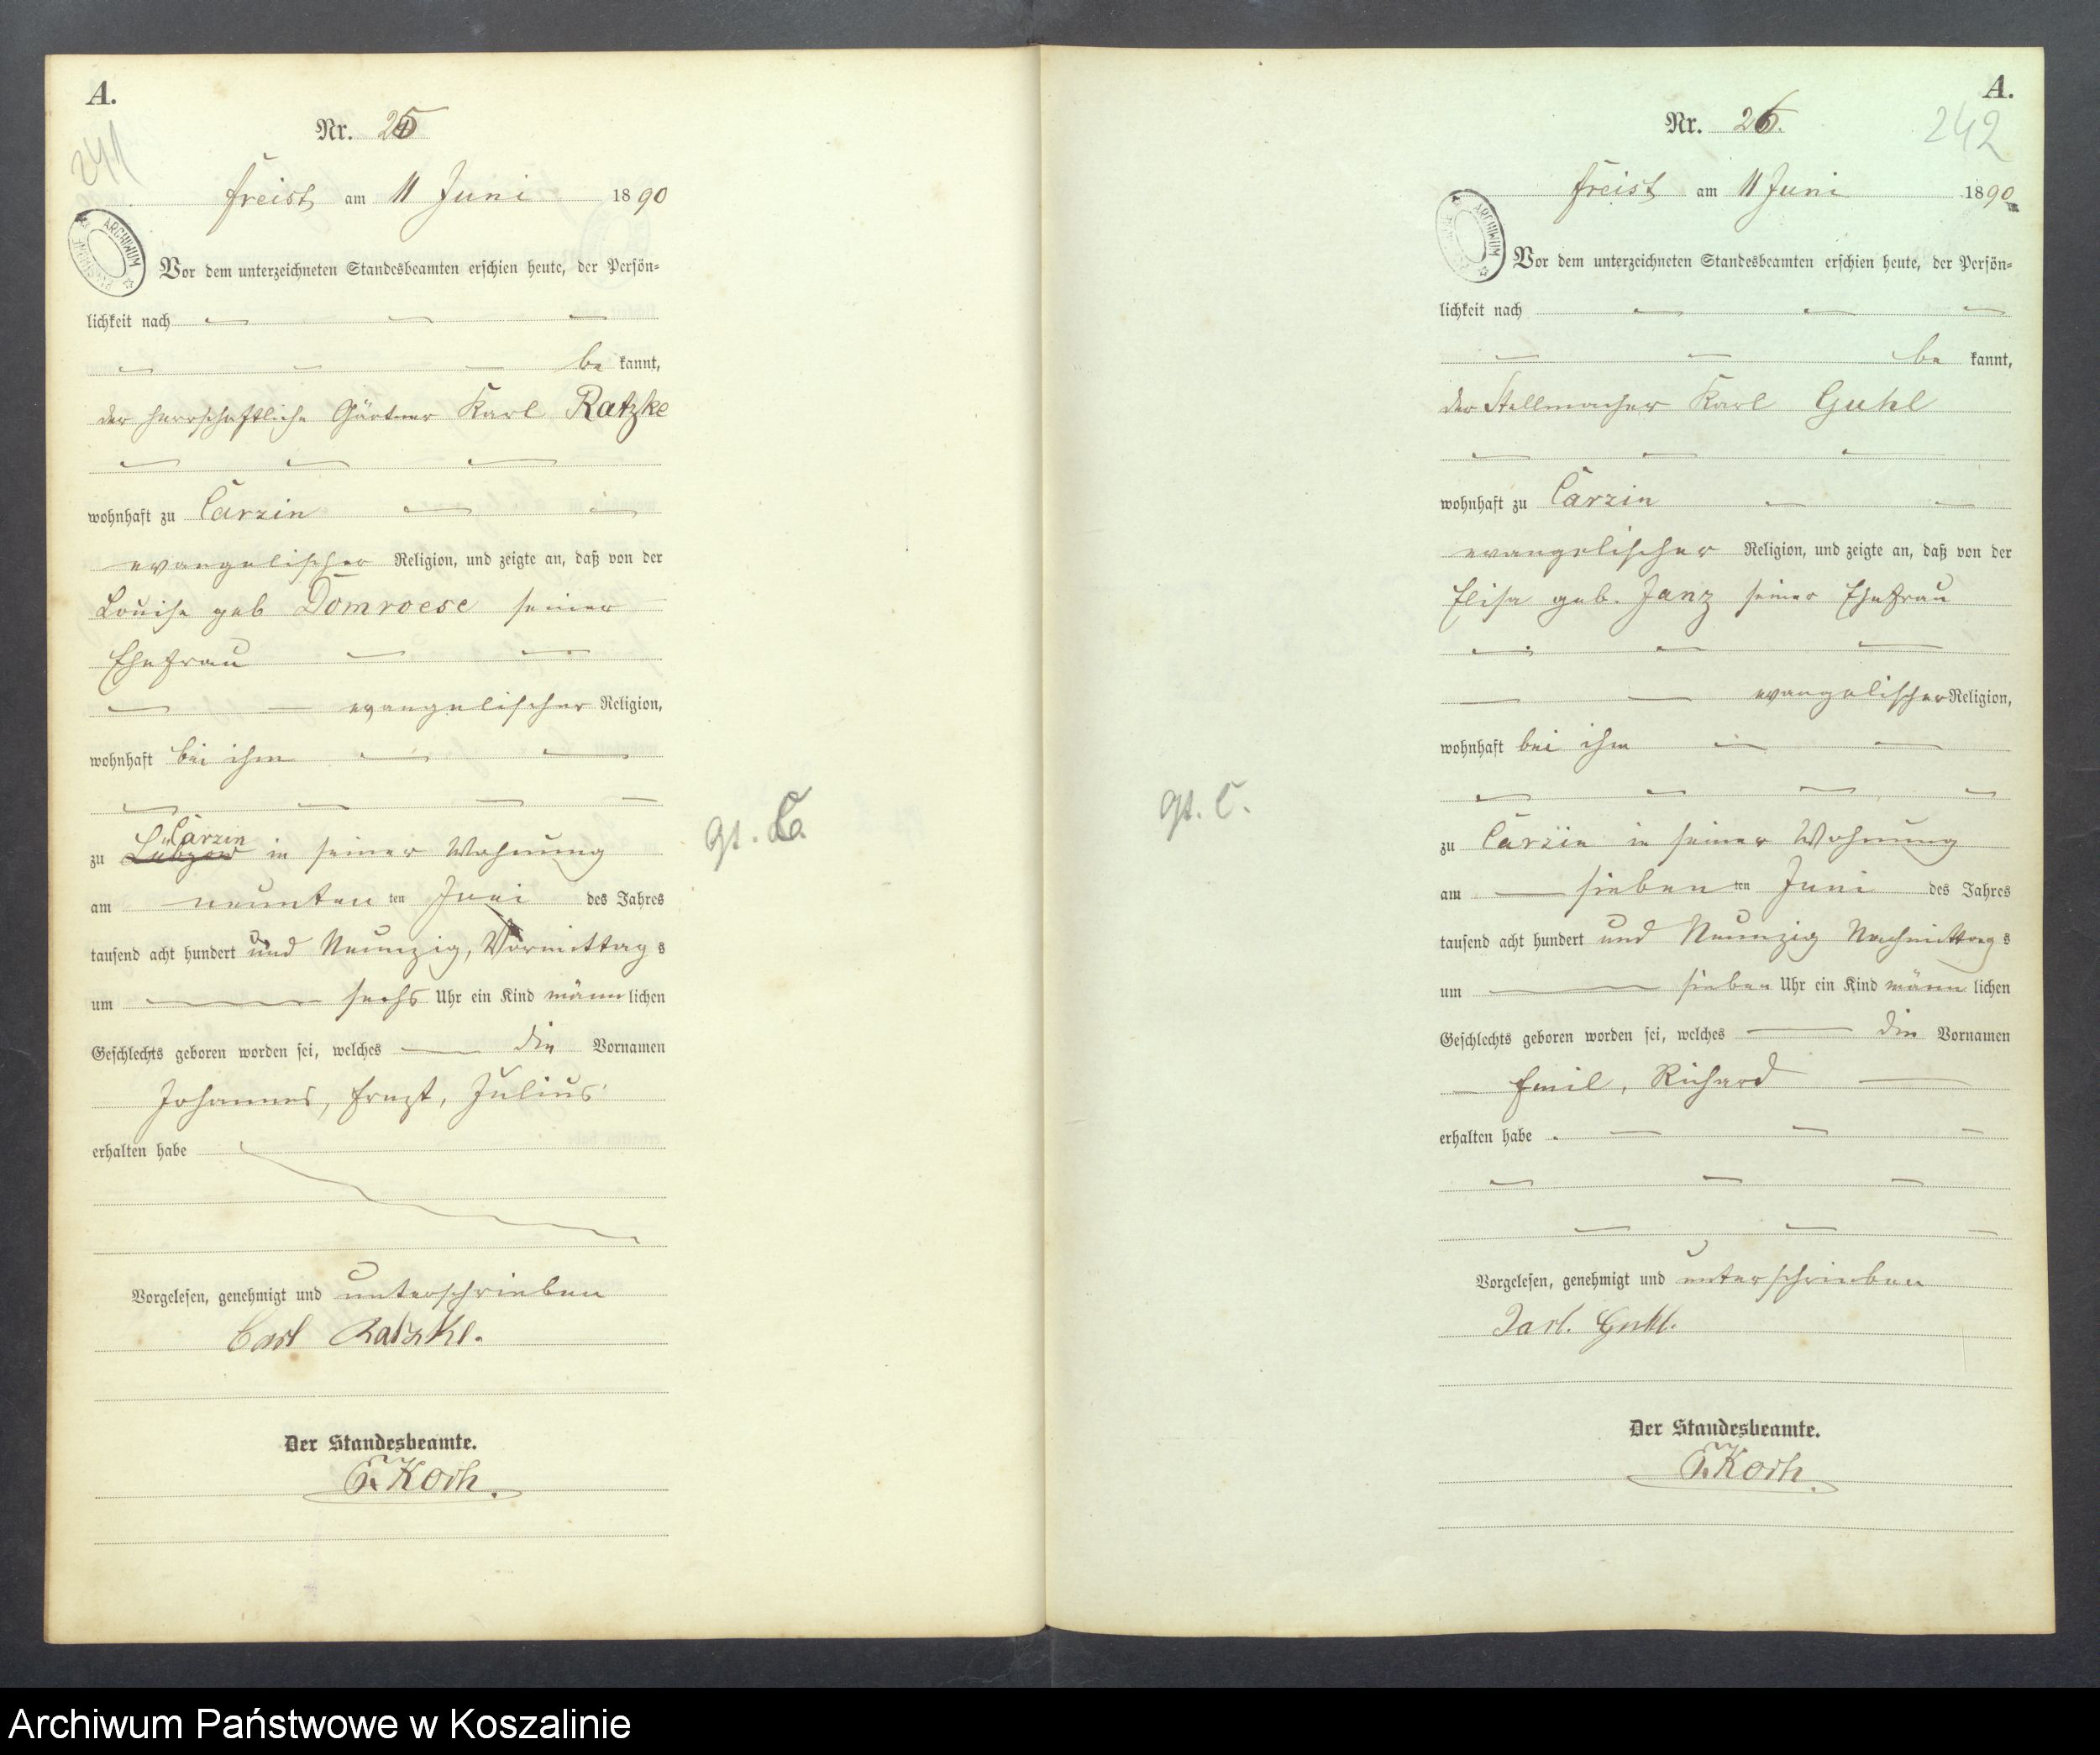 A.
Nr. 25
241
Freist am 11 Juni 1890
ARCHIWUM
Vor dem unterzeichneten Standesbeamten erschien heute, der Persön-
lichkeit nach
be kannt,
der herrschaftliche Gärtner Karl Ratzke
wohnhaft zu Carzin
evangelischer Religion, und zeigte an, daß von der
Louise geb Domroese seiner
Ehefrau
evangelischer Religion,
wohnhaft bei ihm
Carzin
zu Lübzow in seiner Wohnung
am neunten ten Juni des Jahres
tausend acht hundert und Neunzig, Vormittag s
um sechs Uhr ein Kind männ lichen
Geschlechts geboren worden sei, welches die Vornamen
Johannes, Ernst, Julius
erhalten habe
Vorgelesen, genehmigt und unterschrieben
Carl Ratzke.
Der Standesbeamte.
Koch.
gt. C.
A.
Nr. 26.
242
Freist am 11 Juni 1890
ARCHIWUM
Vor dem unterzeichneten Standesbeamten erschien heute, der Persön-
lichkeit nach
be kannt,
der Stellmacher Karl Guhl
wohnhaft zu Carzin
evangelischer Religion, und zeigte an, daß von der
Elisa geb. Janz seiner Ehefrau
evangelischer Religion,
wohnhaft bei ihm
gt. C.
zu Carzin in seiner Wohnung
am sieben ten Juni des Jahres
tausend acht hundert und Neunzig Nachmittag s
um sieben Uhr ein Kind männ lichen
Geschlechts geboren worden sei, welches die Vornamen
Emil, Richard
erhalten habe
Vorgelesen, genehmigt und unterschrieben
Karl. Guhl.
Der Standesbeamte.
Koch.
Archiwum Państwowe w Koszalinie